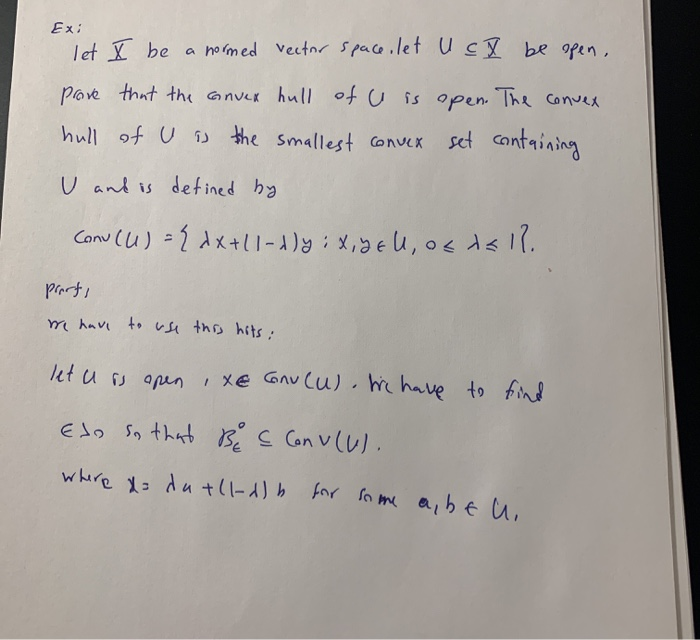 Ex:
let X be a normed vector space. let U ⊆ X be open.
prove that the convex hull of U is open. The convex
hull of U is the smallest convex set containing
U and is defined by
Conv(U) = { λx+(1-λ)y : x,y ∈ U, 0 ≤ λ ≤ 1}.
proof,
we have to use this hits:
let U is open , x ∈ Conv(U). we have to find
∈ >0 so that B°ε ⊆ Conv(U).
where x = λa +(1-λ) b for some a,b ∈ U.